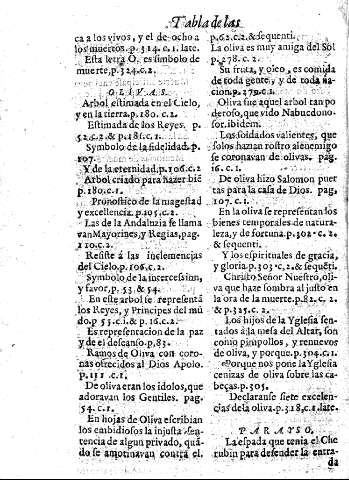 Tabla de las
ca a los vivos, y el de ocho a
los muertos. p. 314. c. 1. late.
Esta letra O. es simbolo de
muerte, p. 324. c. 2.
OLIVAS.
Arbol estimada en el Cielo,
y en la tierra. p. 180. c. 2.
Estimada de los Reyes. p.
52. c. 2. & p. 181. c. 1.
Symbolo de la fidelidad. p.
107.
Y de la eternidad, p. 106. c. 2
Arbol criado para hazer bié
p. 180. c. 1.
Pronostico de la magestad
y excellencia. p. 105. c. 2.
Las de la Andaluzia se llama
van Mayorines, y Regias, pag.
110. c. 2.
Resiste á las inclemencias
del Cielo. p. 106. c. 2.
Symbolo de la intercession,
y favor, p. 53. & 54.
En este arbol se representá
los Reyes, y Principes del mú
do. p 53. c. 1. & p. 16. c. 2.
Es representacion de la paz
y de el descanso. p. 83.
Ramos de Oliva con coro-
nas ofrecidos al Dios Apolo.
p. 151. c. 1.
De oliva eran los idolos, que
adoravan los Gentiles. pag.
54. c. 1.
En hojas de Oliva escribian
los embidiosos la injusta sen-
tencia de algun privado, quá-
do se amotinavan contra el.
p. 62. c. 2. & sequenti.
La oliva es muy amiga del Sol
p. 278. c. 2.
Su fruta, y oleo, es comida
de toda gente, y de toda na-
cion. p. 279. c. 1.
Oliva fue aquel arbol tan po
deroso, que vido Nabucdono-
sor. ibidem.
Los soldados valientes, que
solos hazan rostro al enemigo
se coronavan de olivas. pag.
16. c. 1.
De oliva hizo Salomon puer
tas para la casa de Dios. pag,
107. c. 1.
En la oliva se representan los
bienes temporales de natura-
leza, y de fortuna. p. 302. c. 2.
& sequenti.
Y los espirituales de gracia,
y gloria. p. 303. c. 2. & sequéti.
Christo Señor Nuestro, oli-
va que haze sombra al justo en
la ora de la muerte. p. 82. c. 2.
& p. 325. c. 2.
Los hijos de la Yglesia sen-
tados à la mesa del Altar, son
como pimpollos, y renuevos
de oliva, y porque. p. 304. c. 1.
Porque nos pone la Yglesia
cenizas de oliva sobre las ca-
beças. p. 305.
Declaranse siete excelen-
cias de la oliva. p. 318, c. 1. late.
PARAYSO,
La espada que tenia el Che
rubin para defender la entra-
da